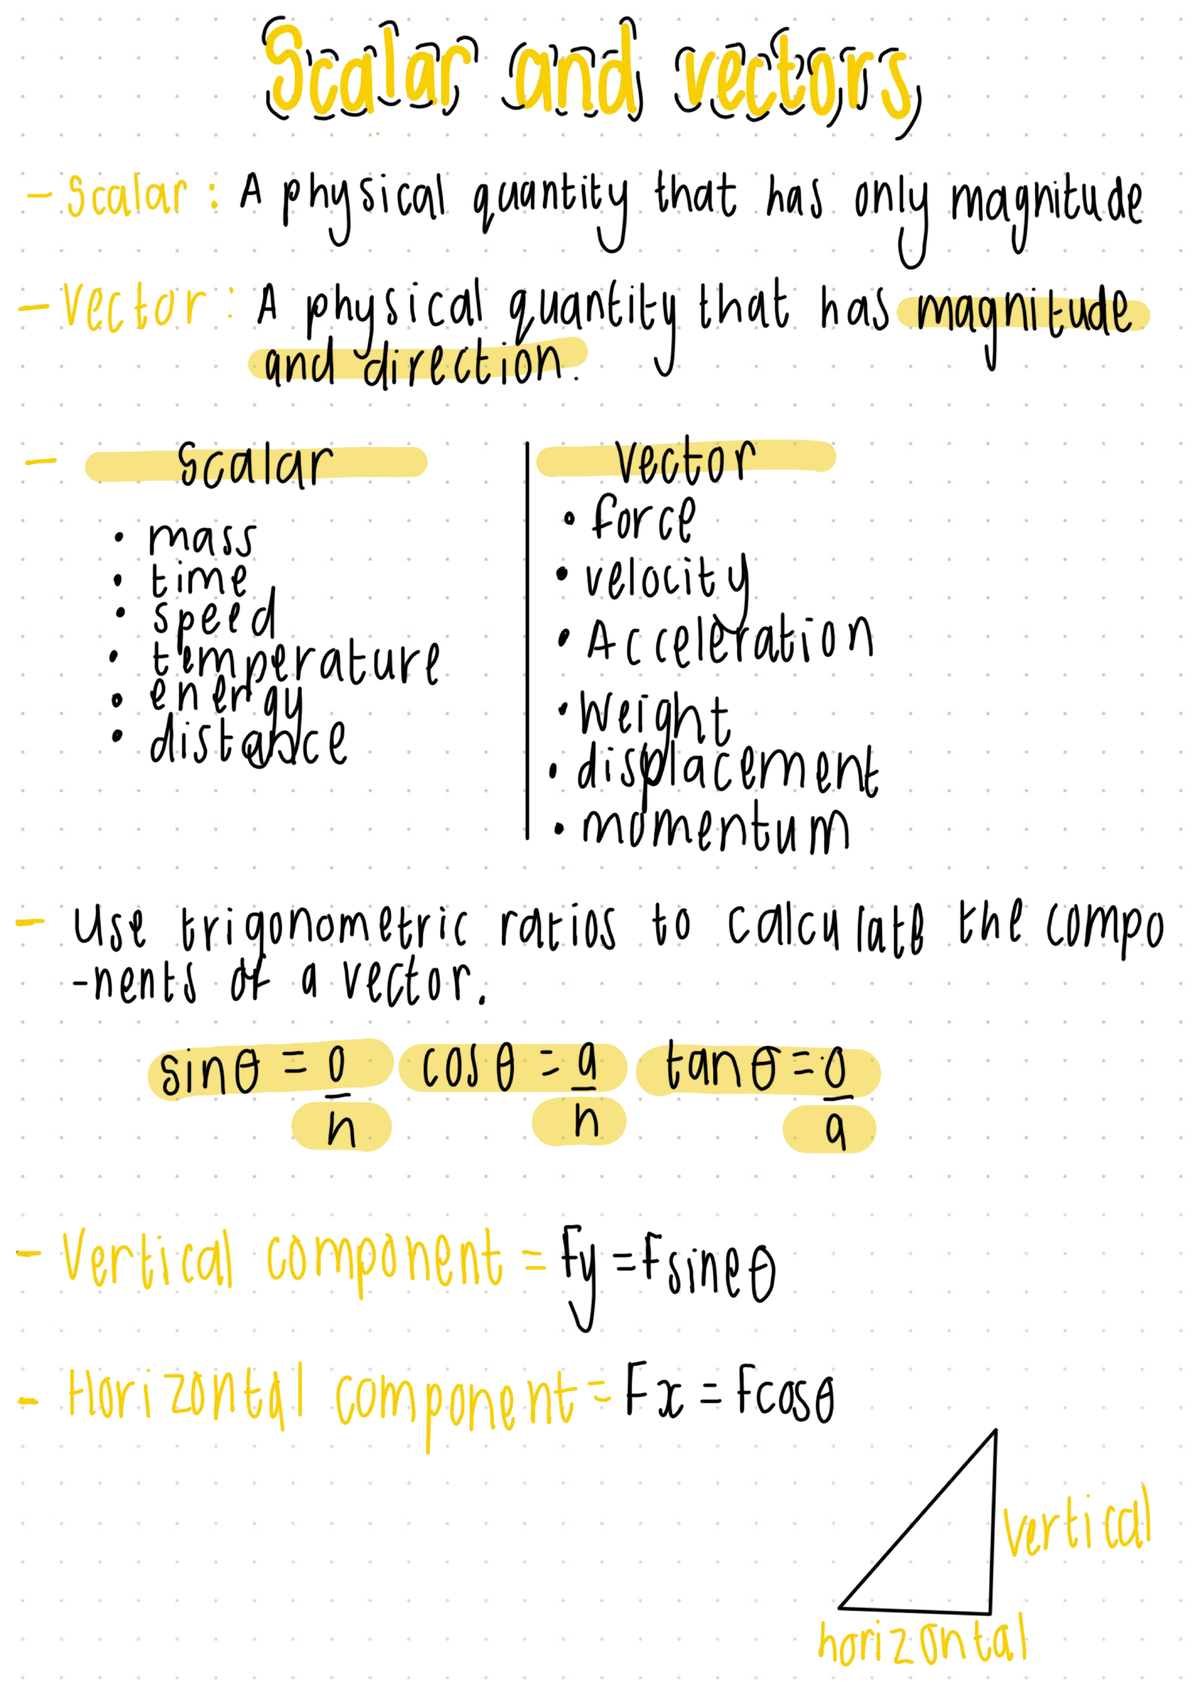 Scalar and vectors
- Scalar: A physical quantity that has only magnitude
- Vector: A physical quantity that has magnitude
and direction.
- Scalar
• mass
• time
• speed
• temperature
• energy
• distance
Vector
• force
• velocity
• Acceleration
• Weight
• displacement
• momentum
- Use trigonometric ratios to calculate the compo
-nents of a vector.
sinθ = o/h cosθ = a/h tanθ = o/a
- Vertical component = Fy = Fsineθ
- Horizontal component = Fx = Fcosθ
vertical
horizontal